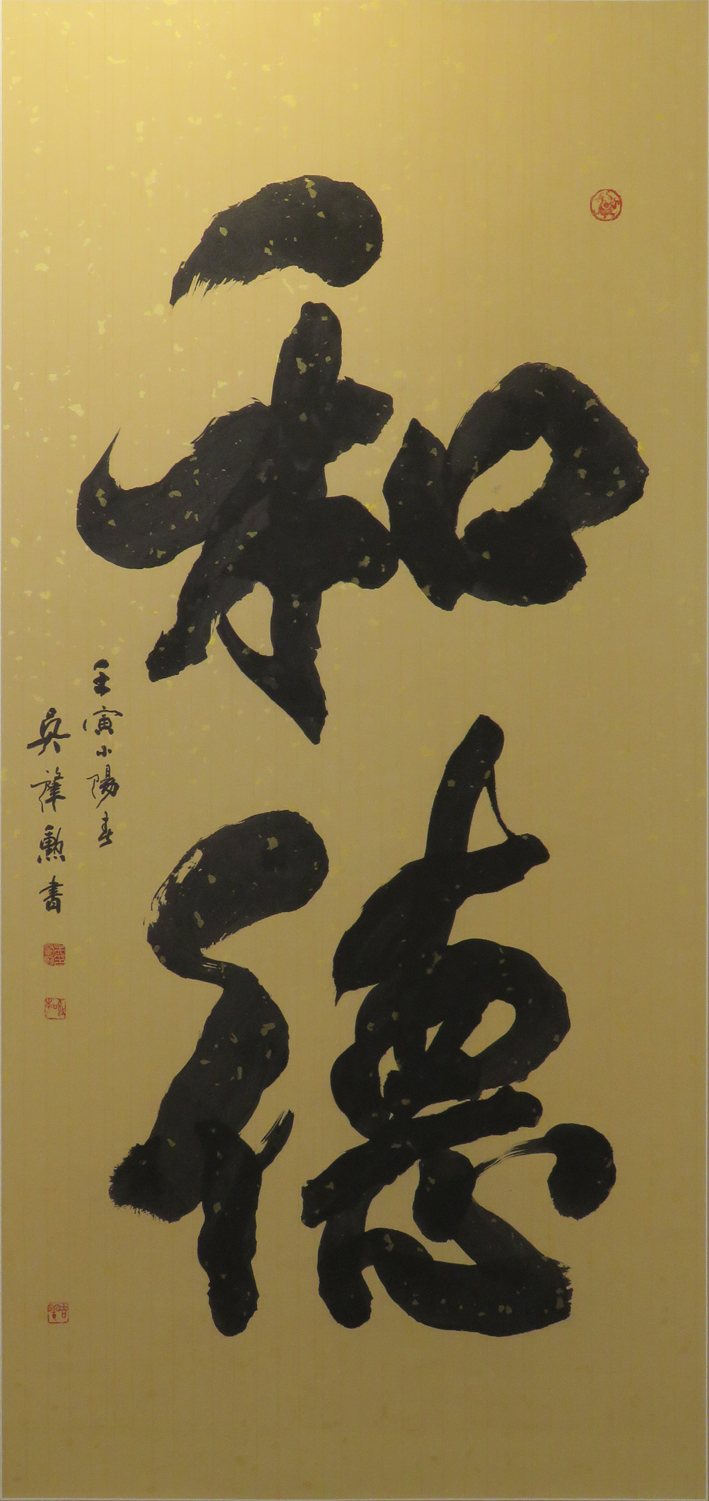 和
德
壬寅小陽春
吳肇勳書